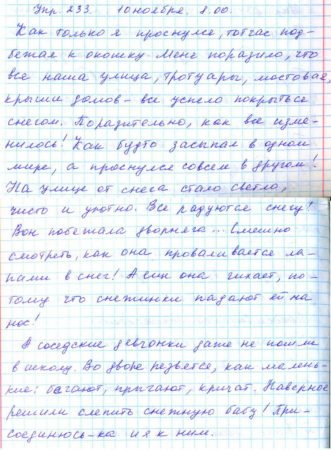 Упр. 233. 10 ноября. 8.00.
Как только я проснулся, тотчас под-
бежал к окошку. Меня поразило, что
вся наша улица, тротуары, мостовая,
крыши домов - все успело покрыться
снегом. Поразительно, как все изме-
нилось! Как будто засыпал в одном
мире, а проснулся совсем в другом!
На улице от снега стало светло,
чисто и уютно. Все радуются снегу!
Вон побежала дворняга... Смешно
смотреть, как она проваливается ла-
пами в снег! А ещё она чихает, по-
тому что снежинки падают ей на
нос!
А соседские девчонки даже не пошли
в школу. Во дворе резвятся, как малень-
кие: бегают, прыгают, кричат. Наверное
решили слепить снежную бабу! При-
соединюсь-ка и я к ним...